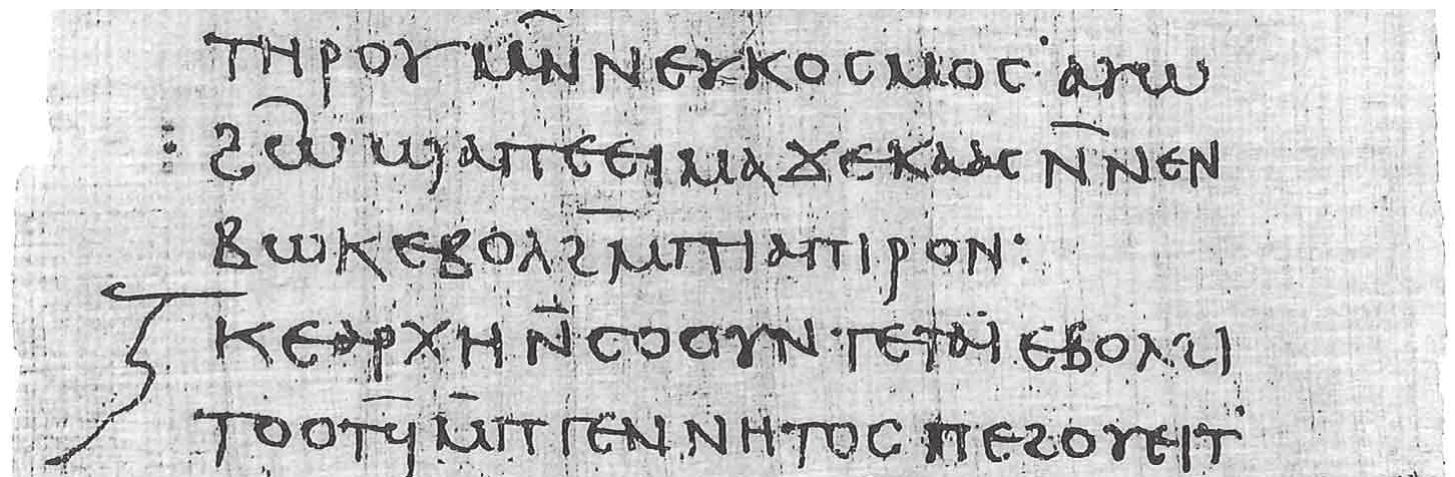 ⲧⲏⲣⲟⲩ ⲙⲛ̄ ⲛⲉⲩⲕⲟⲥⲙⲟⲥ· ⲁⲩⲱ
ϩⲱ ϣⲁ ⲡⲉⲉⲓⲙⲁ ϫⲉⲕⲁⲁⲥ ⲛ̄ⲛⲉⲛ
ⲃⲱⲕ ⲉⲃⲟⲗ ϩⲙ̄ ⲡⲓⲁⲡⲓⲣⲟⲛ:
ⲕⲉⲁⲣⲭⲏ ⲛ̄ⲥⲟⲟⲩⲛ ⲧⲉ ⲧⲁⲓ̈ ⲉⲃⲟⲗ ϩⲓ
ⲧⲟⲟⲧϥ̄ ⲙ̄ⲡⲅⲉⲛⲛⲏⲧⲟⲥ ⲡⲉϩⲟⲩⲉⲓⲧ